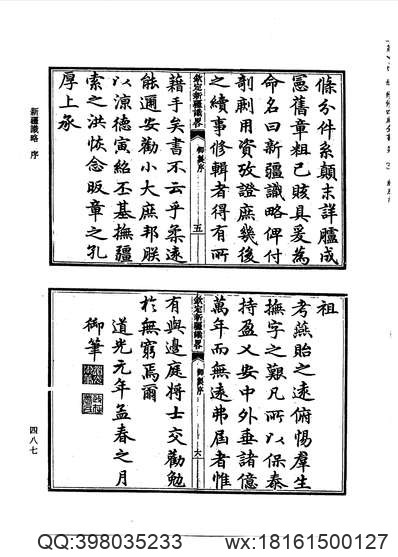 條分件系顛末詳臚成
憲舊章粗已賅具爰為
命名曰新疆識略俾付
剞劂用資攷證庶幾後
之續事修輯者得有所
欽定新疆識畧
御製序
五
藉手矣書不云乎柔遠
能邇安勸小大庶邦朕
以涼德寅紹丕基撫疆
索之洪恢念昄章之孔
厚上承
新疆識略 序
祖
考燕貽之遠俯惕羣生
撫字之艱凡所以保泰
持盈乂安中外垂諸億
萬年而無遠弗屆者惟
欽定新疆識畧
御製序
六
有與邊庭將士交勸勉
於無窮焉爾
道光元年孟春之月
御筆
四八七
QQ:398035233
wx:18161500127